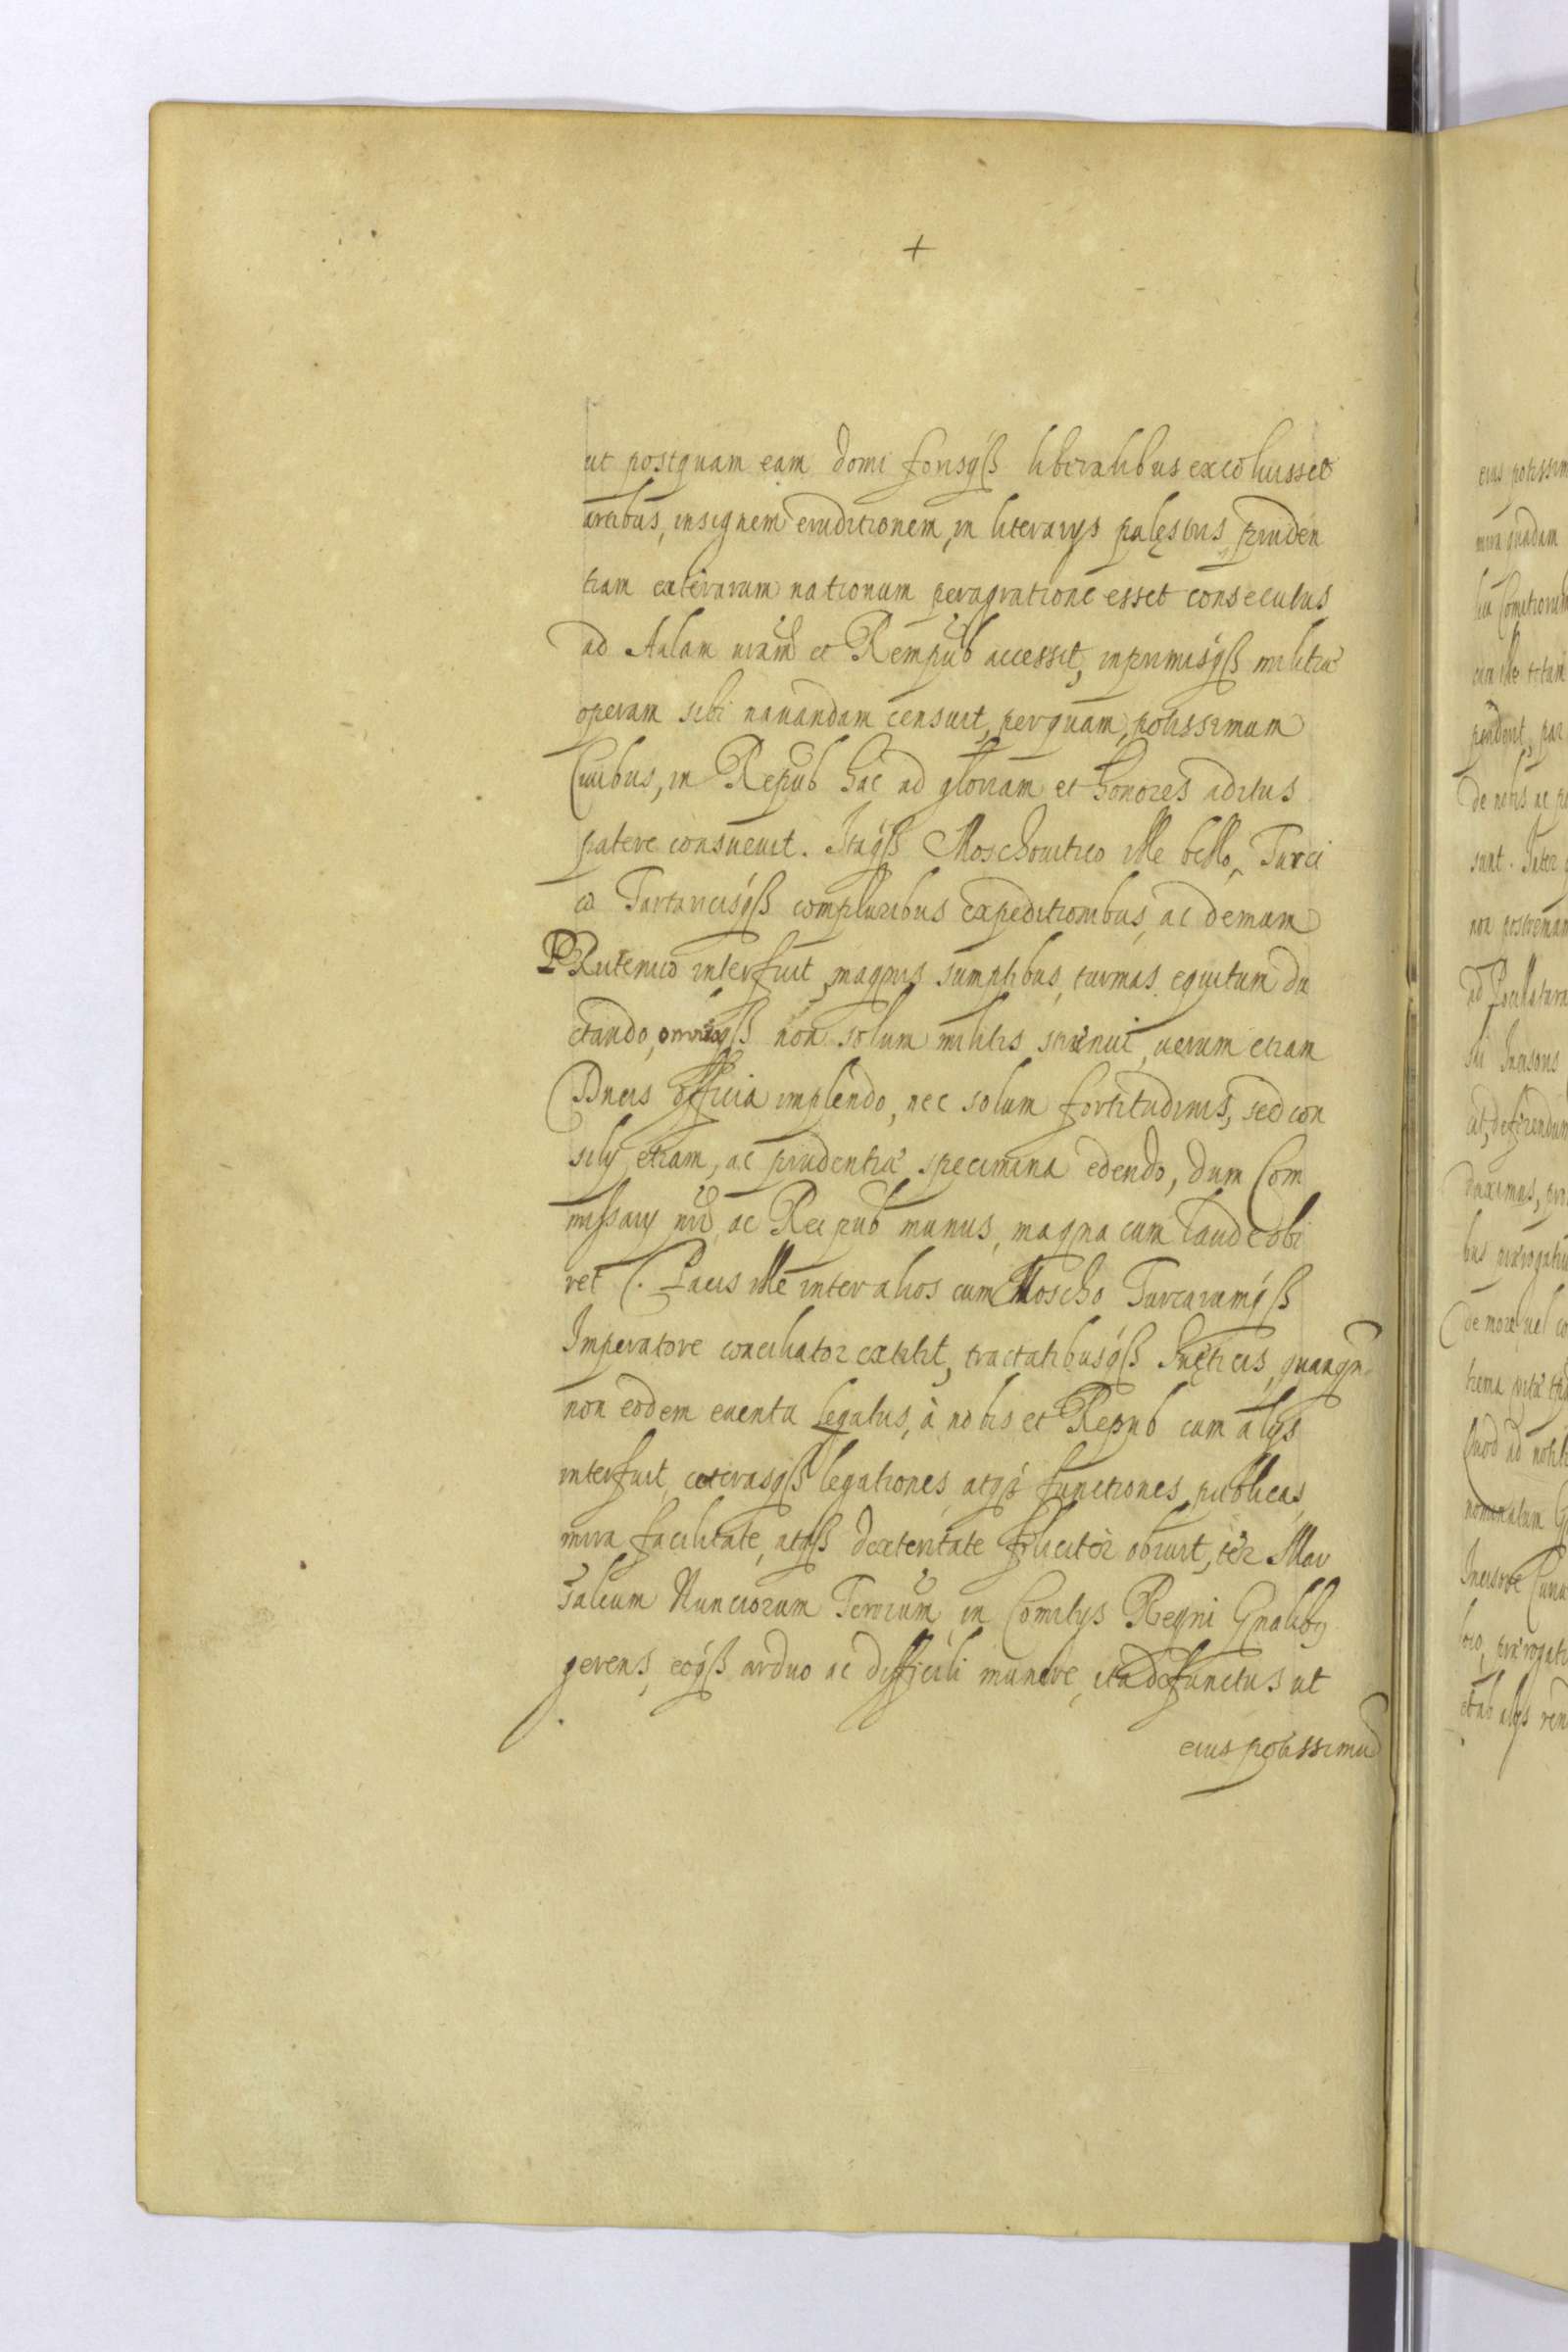 +
ut postquam eam domi forisqß liberalibus excoluisset
artibus, insignem eruditionem, in literarys palęstris, pruden
tiam exterarum nationum peragratione esset consecutus
ad Aulam nram et Rempub accessit, inprimisqß militiæ
operam sibi nauandam censuit, per quam, potissimum
Ciuibus, in Repub hac ad gloriam et honores aditus
patere consueuit. Itaqß Moschouitico ille bello, Turci
co Tartaricisqß compluribus expeditionibus, ac demum
PRutenico interfuit, magnis sumptibus, turmas equitum du
ctando, omniaqß non solum militis strænui, uerum etiam
Ducis officia implendo, nec solum fortitudinis, sed con
sily etiam, ac prudentiæ specimina edendo, dum Com
missary nri ac Reipub munus, magna cum laude obi
ret (. Pacis ille inter alios cum Moscho Turcarumqß
Imperatore conciliator extitit, tractatibusqß Suęticis, quanqu
non eodem euentu Legatus, à nobis et Repub cum alys
interfuit, cæterasqß legationes, atqß functiones publicas,
mira facilitate, atqß dexteritate fæliciter obiuit, ter Mar
salcum Nunciorum Terrarum, in Comitys Regni Gnalibq
gerens, eoqß arduo ac difficili munere, ita defunctus ut
eius potissimu